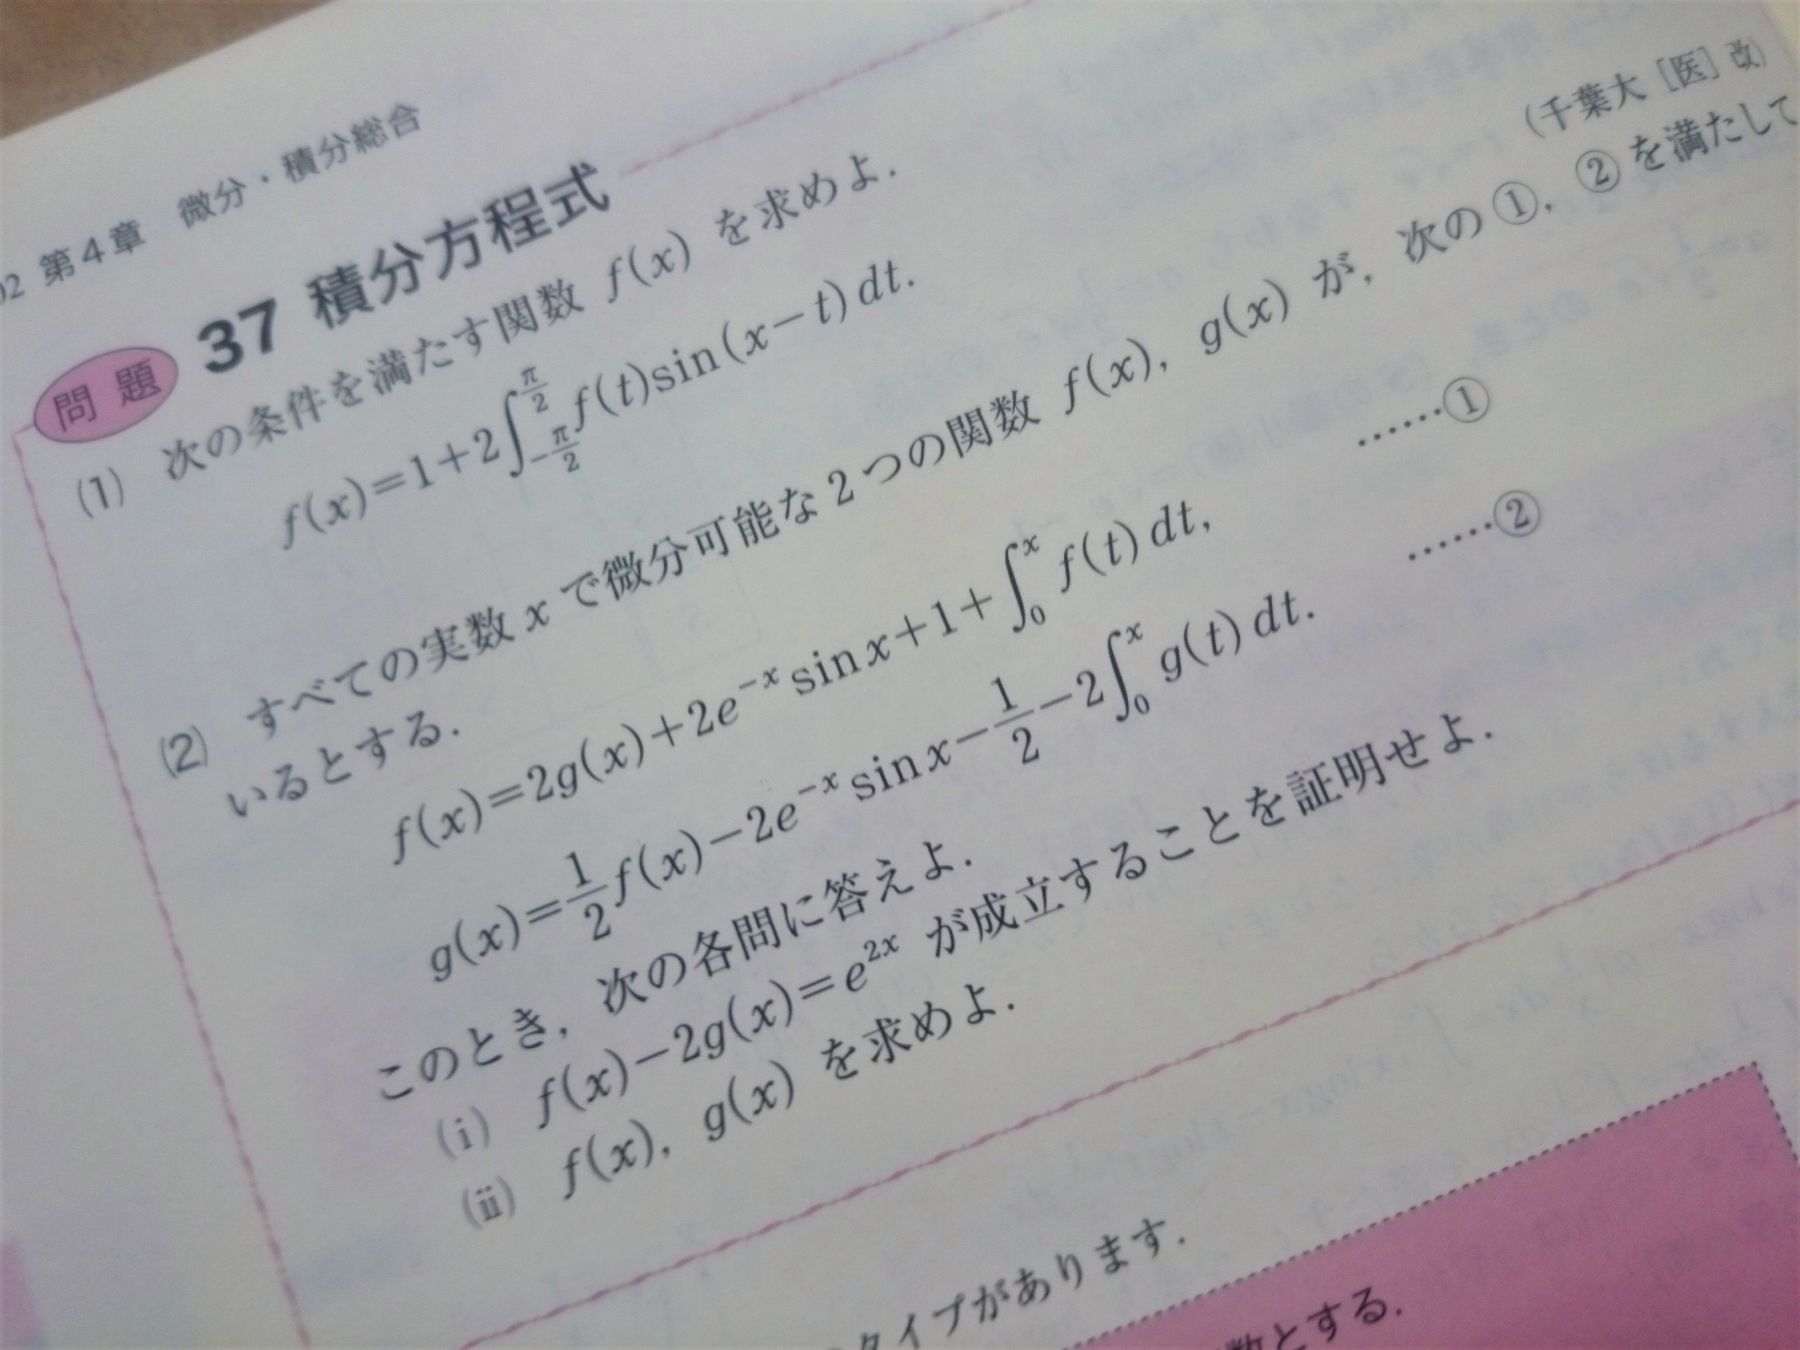 02 第4章 微分・積分総合
問題 37 積分方程式
(千葉大［医］改)
(1) 次の条件を満たす関数 f(x) を求めよ.
f(x)=1+2∫_{-π/2}^{π/2} f(t)sin(x-t)dt.
(2) すべての実数 x で微分可能な2つの関数 f(x), g(x) が, 次の①, ②を満たして
いるとする.
f(x)=2g(x)+2e^{-x}sin x+1+∫_0^x f(t)dt, ……①
g(x)=1/2 f(x)-2e^{-x}sin x-1/2-2∫_0^x g(t)dt. ……②
このとき, 次の各問に答えよ.
(i) f(x)-2g(x)=e^{2x} が成立することを証明せよ.
(ii) f(x), g(x) を求めよ.
タイプがあります.
数とする.